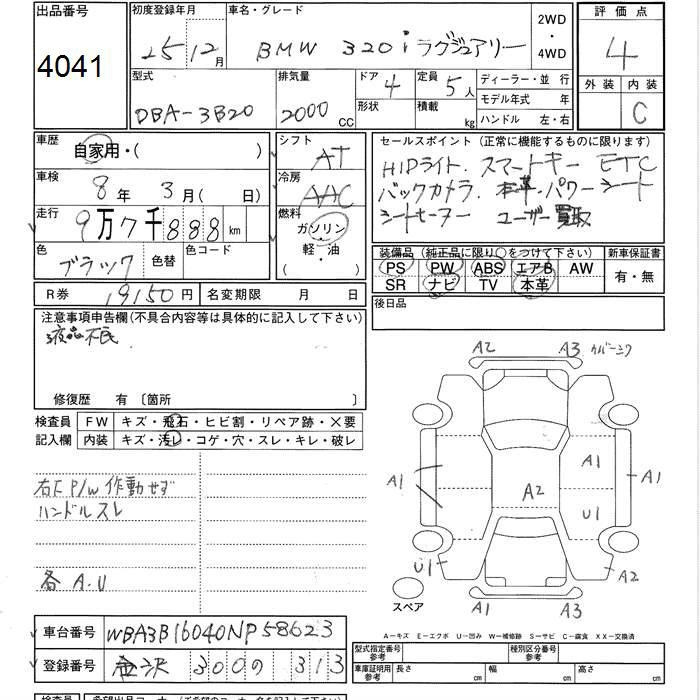 出品番号 初度登録年月 車名・グレード 2WD・4WD 評価点
4041 25 12月 BMW 320i ラグジュアリー 4
型式 排気量 ドア 4 定員 5人 ディーラー・並行 外装 内装
DBA-3B20 2000 CC 形状 積載 kg モデル年式 年 C
ハンドル 左・右
車歴 自家用・( ) シフト AT セールスポイント (正常に機能するものに限ります)
車検 8年 3月(日) 冷房 AAC HIDライト. スマートキー ETC
走行 9万7千888km 燃料 ガソリン バックカメラ. 本革・パワーシート
軽・油 シートヒーター ユーザー買取
( )
色 ブラック 色替 色コード 装備品(純正品に限り○をつけて下さい) 新車保証書
PS PW ABS エアB AW 有・無
SR ナビ TV 本革
R券 19150円 名変期限 月 日 後日品
注意事項申告欄(不具合内容等は具体的に記入して下さい)
液晶不良
修復歴 有〔箇所 〕
検査員 FW キズ・飛石・ヒビ割・リペア跡・×要
記入欄 内装 キズ・汚レ・コゲ・穴・スレ・キレ・破レ
右下 P/W 作動せず
ハンドルスレ
各 A.U
A2 A3
A1 A1 A1
A2 U1
U1 A2
スペア A1 A3
A-キズ E-エクボ U-凹み W-補修跡 S-サビ C-腐食 XX-交換済
車台番号 WBA3B16040NP58623
型式指定番号 参考 種別区分番号 参考
登録番号 金沢 300 の 313
車庫証明用 参考 長さ cm 幅 cm 高さ cm